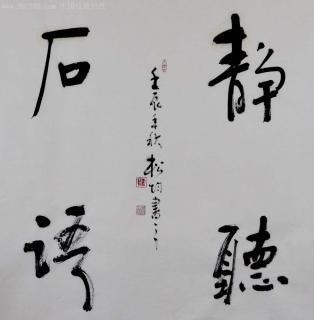 静聽
石语
壬辰年秋松均書